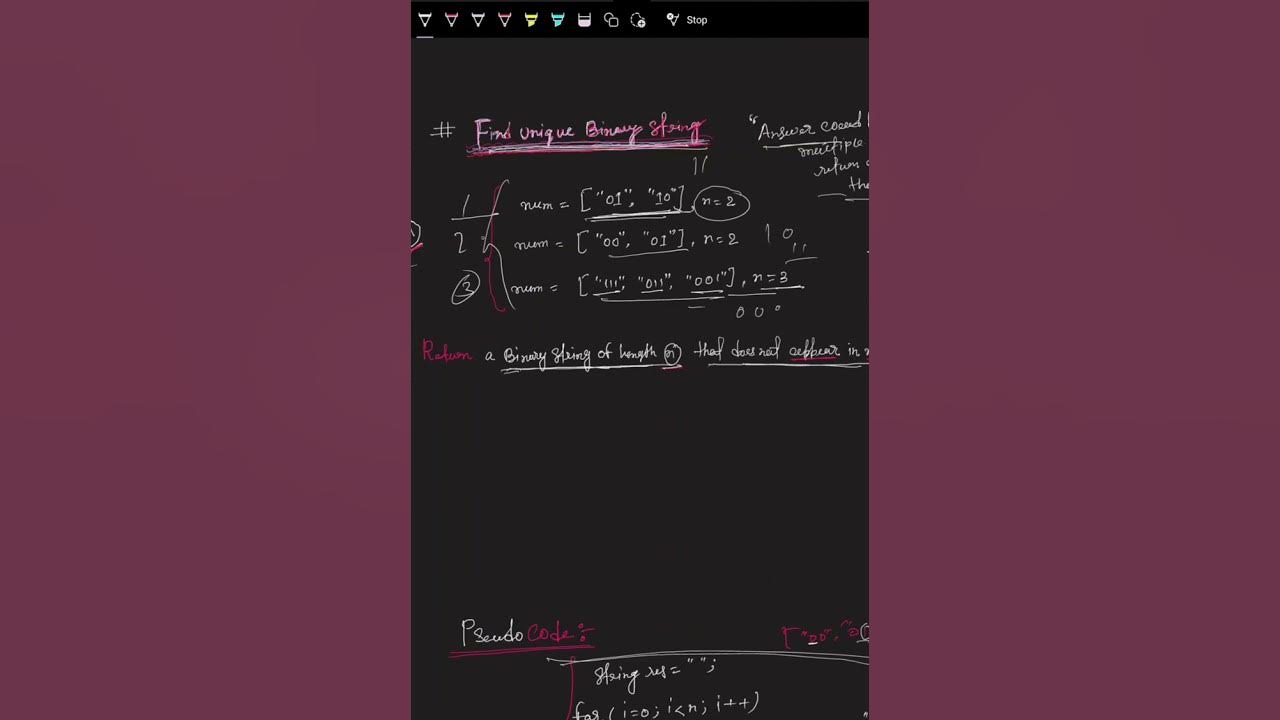 Stop
# Find unique Binary String
"Answer
multiple
return
the
11
1 num = ["01", "10"], n=2
2 num = ["00", "01"], n=2 10 11
3 num = ["111", "011", "001"], n=3
000
Return a Binary String of length n that does not appear in
Pseudo Code:-
String res = "";
for (i=0; i<n; i++)